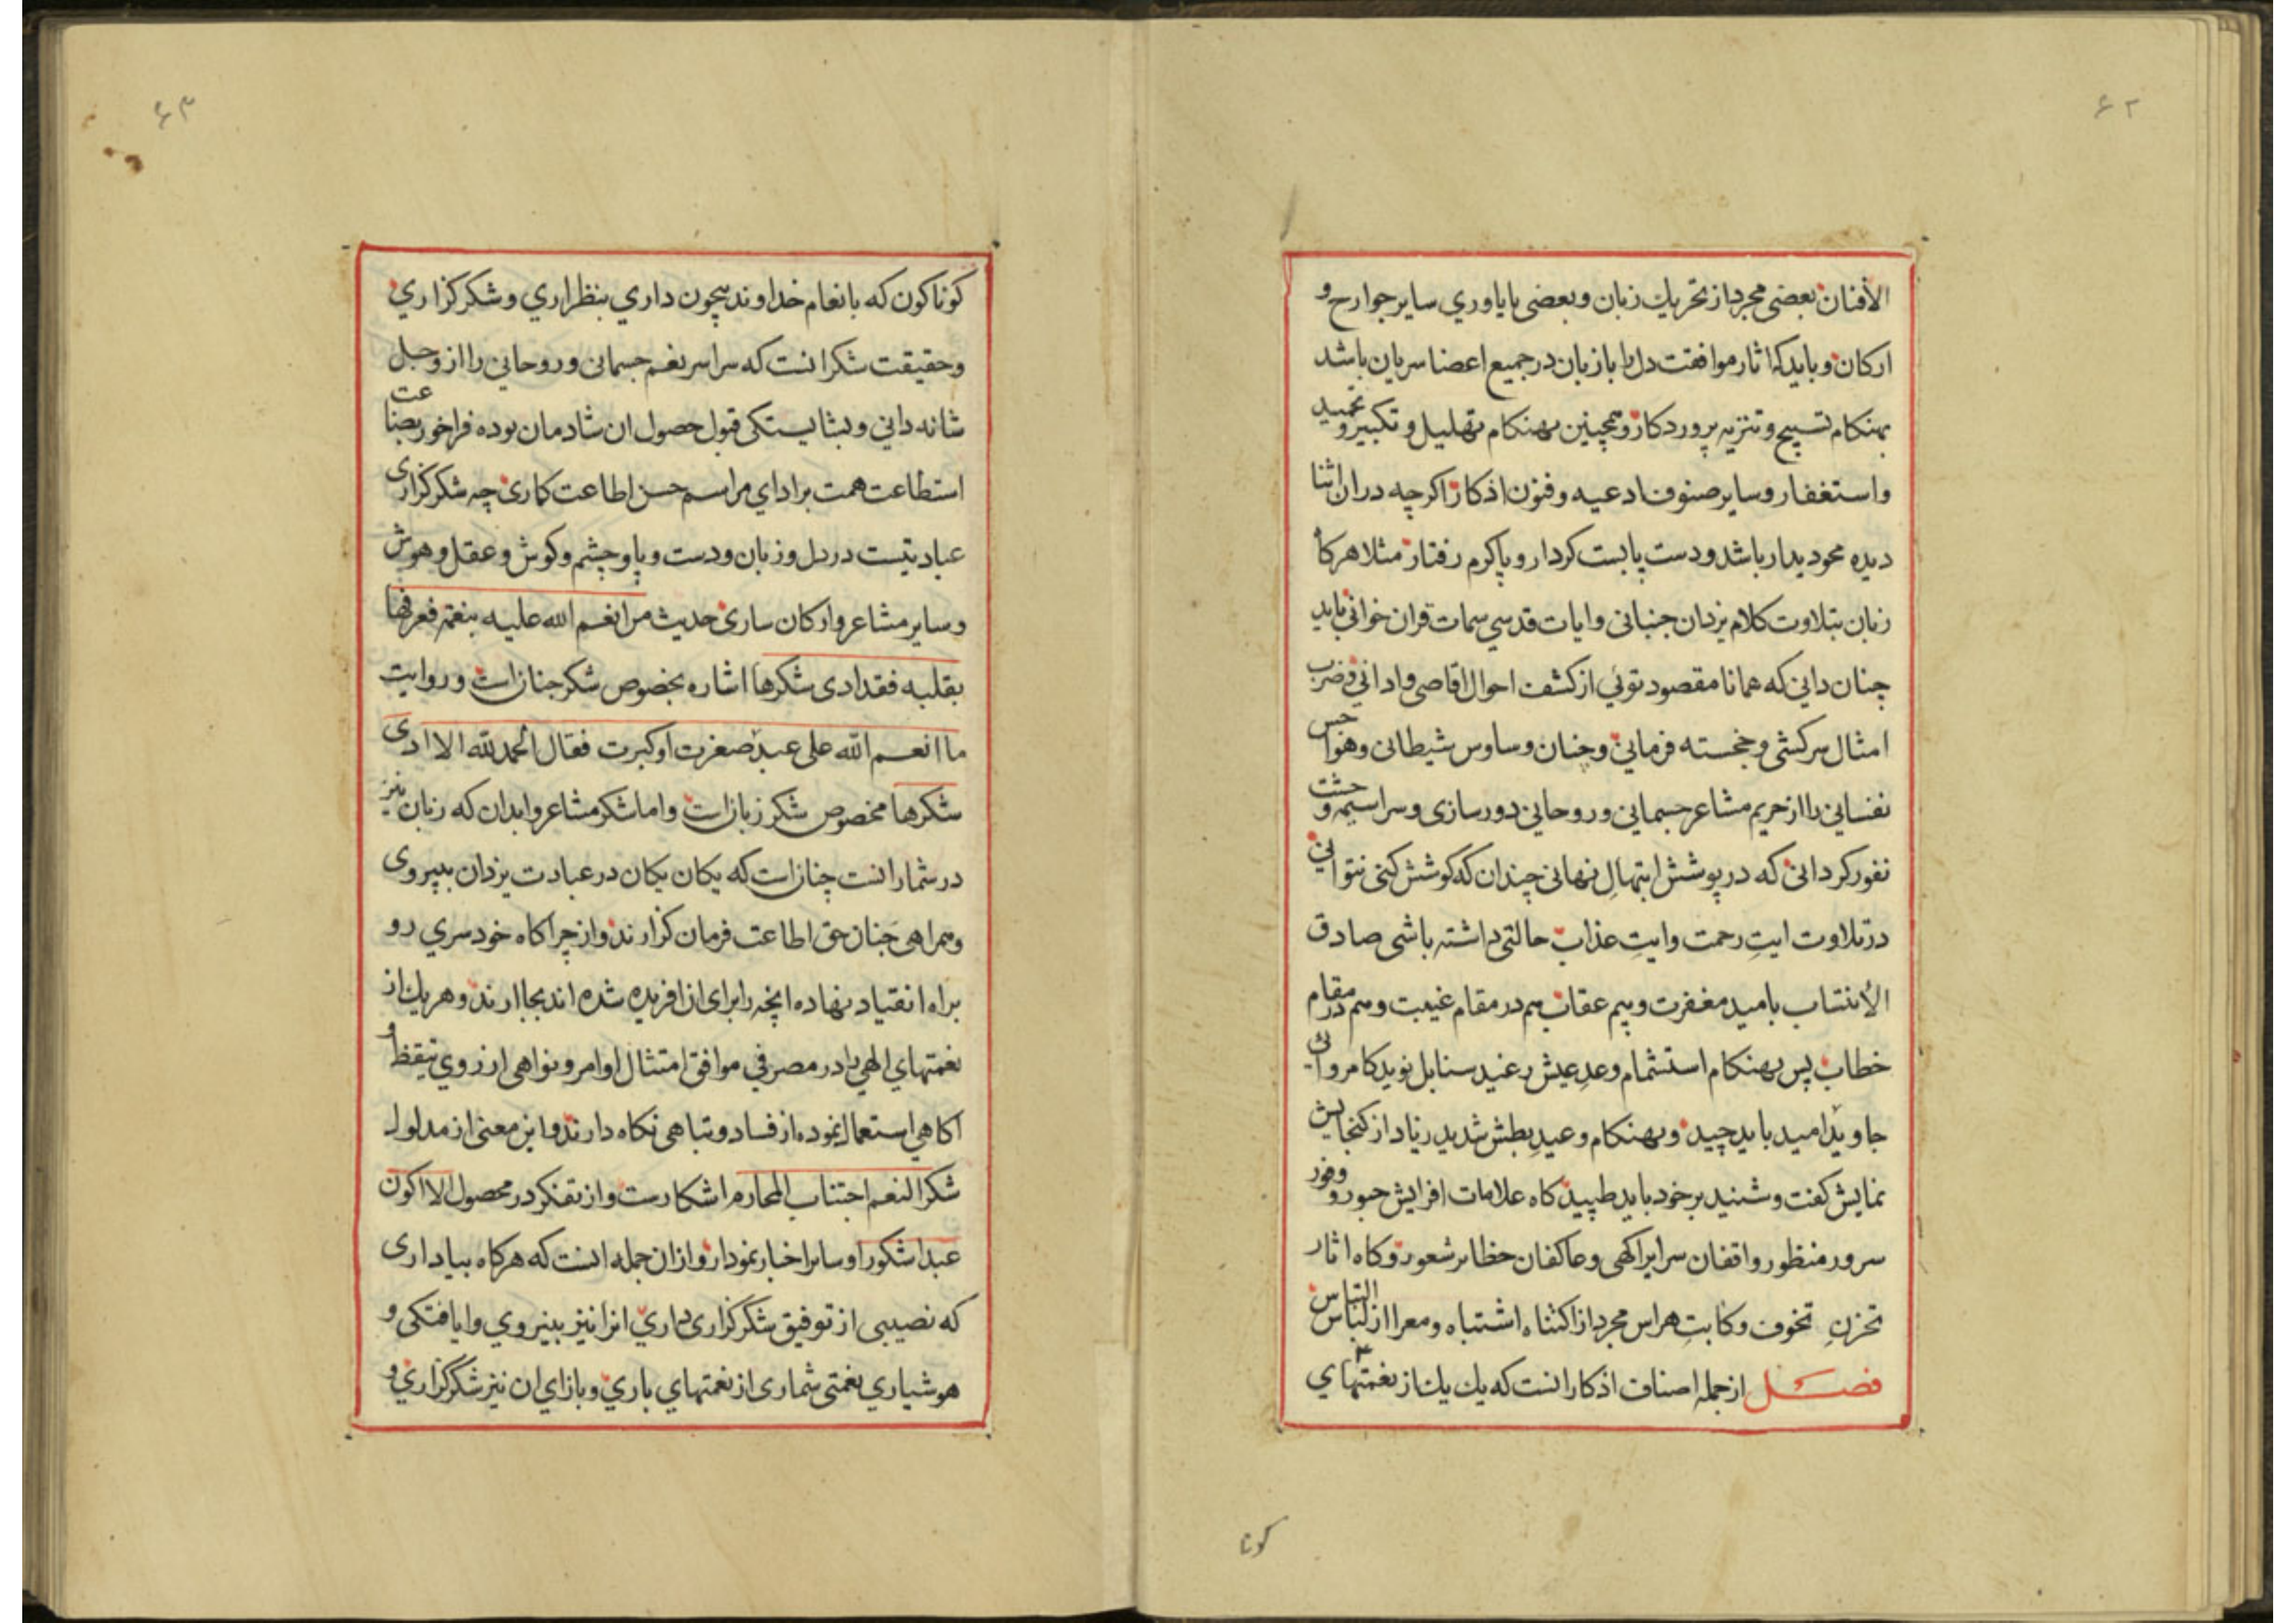 ۶۲
الأفنان بعضی مجرد از تحریك زبان و بعضی بایاوري سایر جوارح و
ارکان و باید که اثار موافقت دل با زبان در جمیع اعضا سریان باشد
بهنکام تسبیح و تنزیه پروردکار و همچنین بهنکام تهلیل و تکبیر و تحمید
و استغفار و سایر صنوف ادعیه و فنون اذکار اکرچه در ان اثنا
دیده محو دیدار باشد و دست پا بست کردار و پا کرم رفتار مثلا هرکاه
زبان بتلاوت کلام یزدان جنبانی و ایات قدسي سمات قران خوانی باید
چنان داني که همانا مقصود توئي از کشف احوال اقاصی و ادانی و ضرب
امثال سرکشی و خجسته فرمانی و چنان وساوس شیطانی و هواجس
نفسانی را از حریم مشاعر جسمانی و روحانی دور سازی و سراسیمه وحشت
نفور کردانی که در پوشش ابتهالِ نهانی چندان که کوشش کنی نتوانی
در تلاوت ایتِ رحمت و ایتِ عذاب حالتی داشته باشی صادق
الأنتساب بامید مغفرت و بیم عقاب هم در مقام غیبت و هم در مقام
خطاب پس بهنکام استشمام وعدِ عیش رغید سنابل نوید کامروائی
جاوید امید باید چید و بهنکام وعیدِ بطش شدید زیاد از کنجایش
نمایش کفت و شنید بر خود باید طپید کاه علامات افزایش حبور و وفور
سرور منظور واقفان سرایر اکهی و عاکفان حظایر شعور و کاه اثار
تحزنِ تخوف و کابتِ هراس مجرد از اکتناه اشتباه و معرا از لباس التباس
فصل از جمله اصناف اذکار انست که یك یك از نعمتهاي
کونا
۶۳
کوناکون که بانعام خداوند بیچون داري بنظر اري و شکر کزاري
و حقیقت شکر انست که سراسر نعم جسمانی و روحانی را از و جل
شانه دانی و بشایستکی قبول حصول ان شادمان بوده فراخور بضاعت
استطاعت همت بر اداي مراسم حسن اطاعت کماری چه شکر کزاری
عبادتیست در دل و زبان و دست و پا و چشم و کوش و عقل و هوش
و سایر مشاعر و ارکان ساری حدیث من انعم الله علیه بنعمة فعرفها
بقلبه فقد ادی شکرها اشاره بخصوص شکر جنان است و روایت
ما انعم الله علی عبد صغرت او کبرت فقال الحمد لله الا ادی
شکرها مخصوص شکر زبان است و اما شکر مشاعر و ابدان که زبان نیز
در شمار انست چنان است که یکان یکان در عبادت یزدان بپیروی
و همراهی جنان حق اطاعت فرمان کزارند و از چراکاه خود سري رو
براه انقیاد نهاده انچه را برای ان افریده شده اند بجا ارند و هر یك از
نعمتهاي الهی را در مصرفي موافق امتثال اوامر و نواهی از روي تیقظ و
اکاهی استعمال نموده از فساد و تباهی نکاه دارند و این معنی از مدلول
شکر النعم اجتناب المحارم اشکارست و از تفکر در محصول الا اکون
عبدا شکورا و سایر اخبار نمودار و از ان جمله انست که هرکاه بیاد اری
که نصیبی از توفیق شکر کزاری داري انرا نیز بنیروي وایافتکی و
هوشیاري نعمتی شماری از نعمتهاي باري و بازاي ان نیز شکر کزاري و